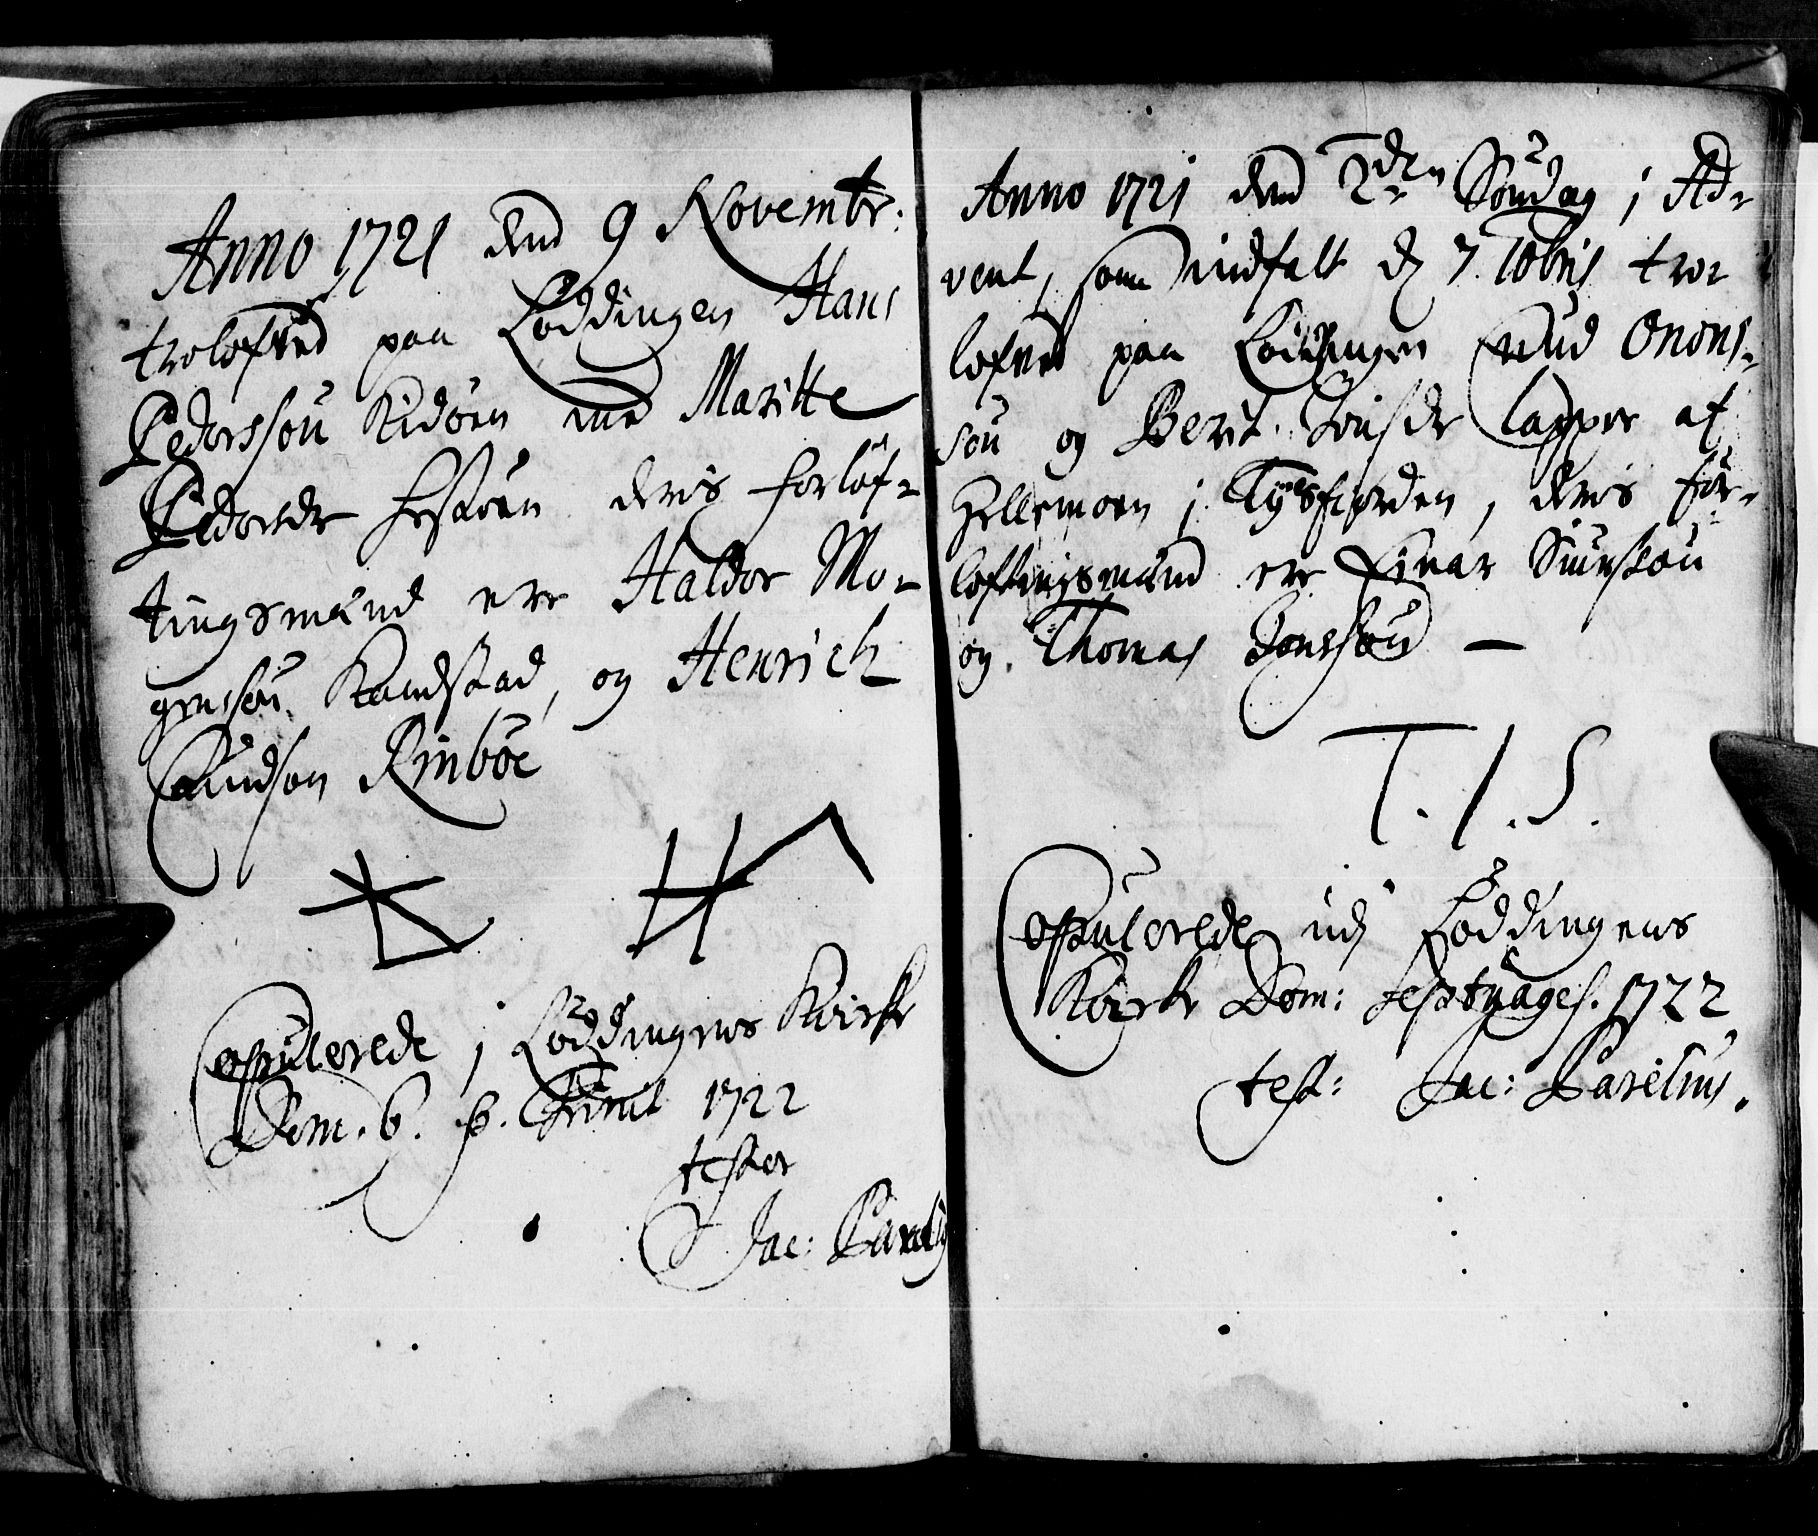 Anno 1721 den 9 Novembr:
trolofved paa Løddingen Hans
Pedersøn Kidøen med Maritte
Pedersdr deris forlof-
tingsmænd ere Haldor Mo-
gensøn Kandstad, og Henrich
Knudsøn Rinbøe
Copulerede i Løddingens Kircke
Dom. 6. p. Trinit 1722
tester
Jac: Parelius
Anno 1721 den 2den Søndag i Ad-
vent, som indfalt d 7. Xbris tro-
lofved paa Lødingen Knud Onons-
søn og Berit Joensdr lapper af
Hellemoen i Tysfiorden, deris for-
loftingsmænd ere Einar Siursøn
og Thomas Jonssøn —
T. I. S.
Copulerede udj Løddingens
Kircke Dom: Septuages. 1722
test: Jac: Parelius.